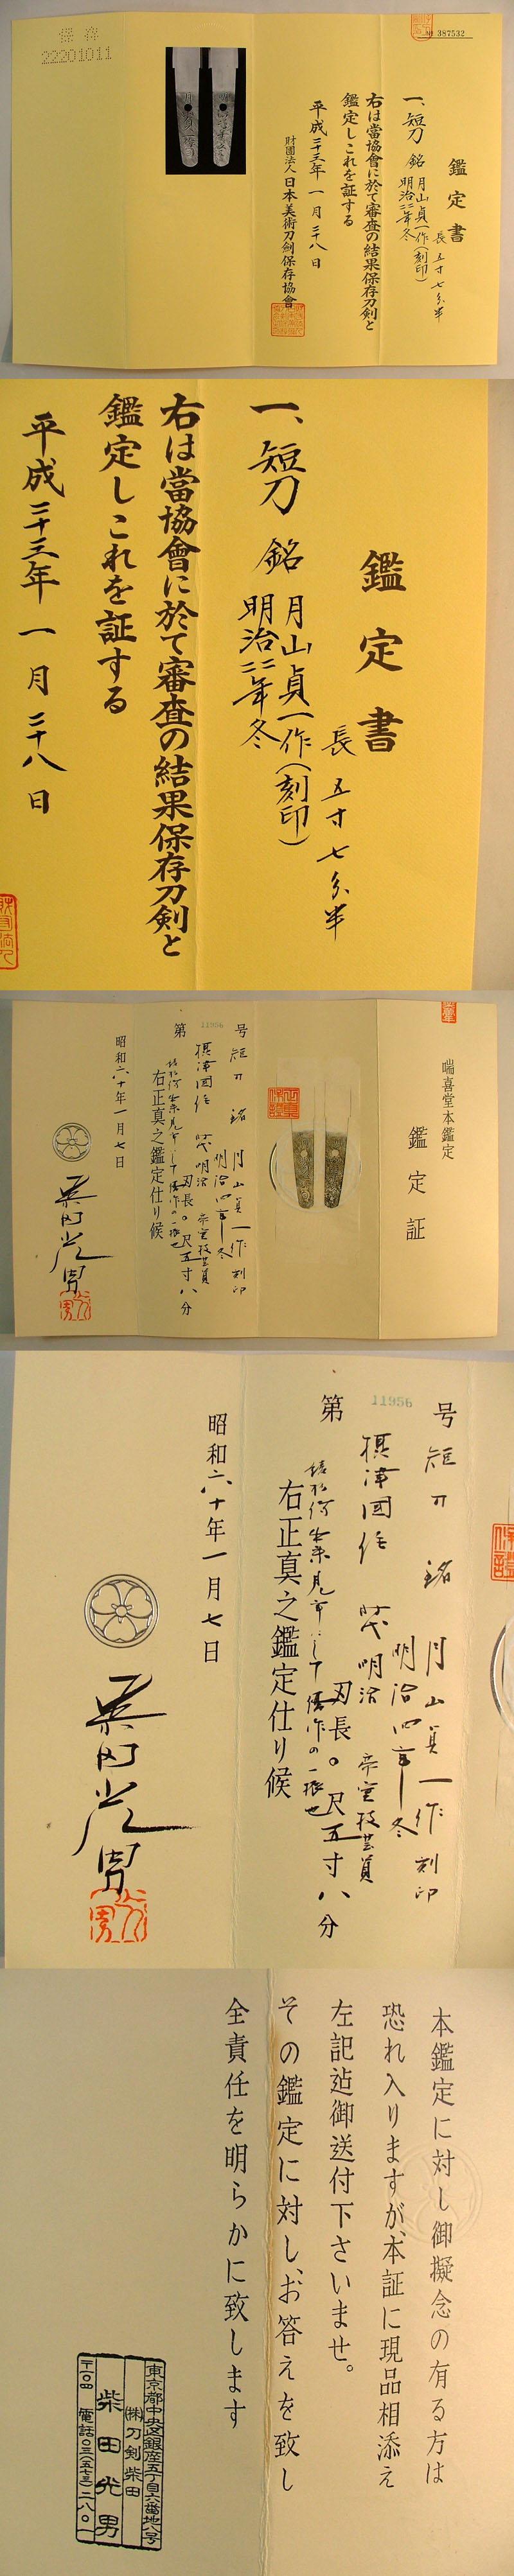 保存
22201011
No 387532
鑑定書
一、短刀 銘 月山貞一作(刻印)
明治二二年冬
長 五寸七分半
右は當協會に於て審査の結果保存刀剣と
鑑定しこれを証する
平成二十三年一月二十八日
財團法人日本美術刀剣保存協會
鑑定書
長 五寸七分半
一、短刀 銘 月山貞一作(刻印)
明治二二年冬
右は當協會に於て審査の結果保存刀剣と
鑑定しこれを証する
平成二十三年一月二十八日
喘喜堂本鑑定
鑑定証
第 11956 号
短刀 銘 月山貞一作 刻印
摂津國住 時代 明治 帝室技芸員
刃長〇尺五寸八分
右正真之鑑定仕り候
昭和六十年一月七日
第 11956 号
短刀 銘 月山貞一作 刻印
摂津國住 時代 明治 帝室技芸員
刃長〇尺五寸八分
右正真之鑑定仕り候
昭和六十年一月七日
本鑑定に対し御擬念の有る方は
恐れ入りますが、本証に現品相添え
左記迠御送付下さいませ。
その鑑定に対し、お答えを致し
全責任を明らかに致します
東京都中央区銀座五丁目六番地八号
(株)刀剣柴田
柴田光男